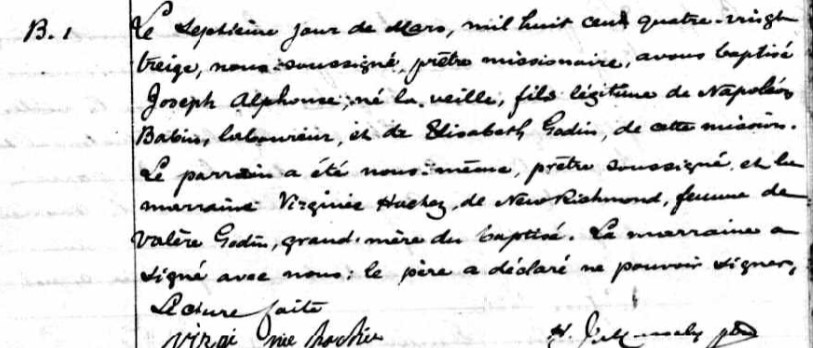 B. 1
Le septième jour de Mars, mil huit cent quatre-vingt
treize, nous soussigné, prêtre missionaire, avons baptisé
Joseph Alphonse, né la veille, fils légitime de Napoléon
Babin, laboureur, et de Elisabeth Godin, de cette mission.
Le parrain a été nous-même, prêtre soussigné et la
marraine Virginie Hachey, de New Richmond, femme de
Valère Godin, grand-mère du baptisé. La marraine a
signé avec nous; le père a déclaré ne pouvoir signer,
Lecture faite
Virginie hachie